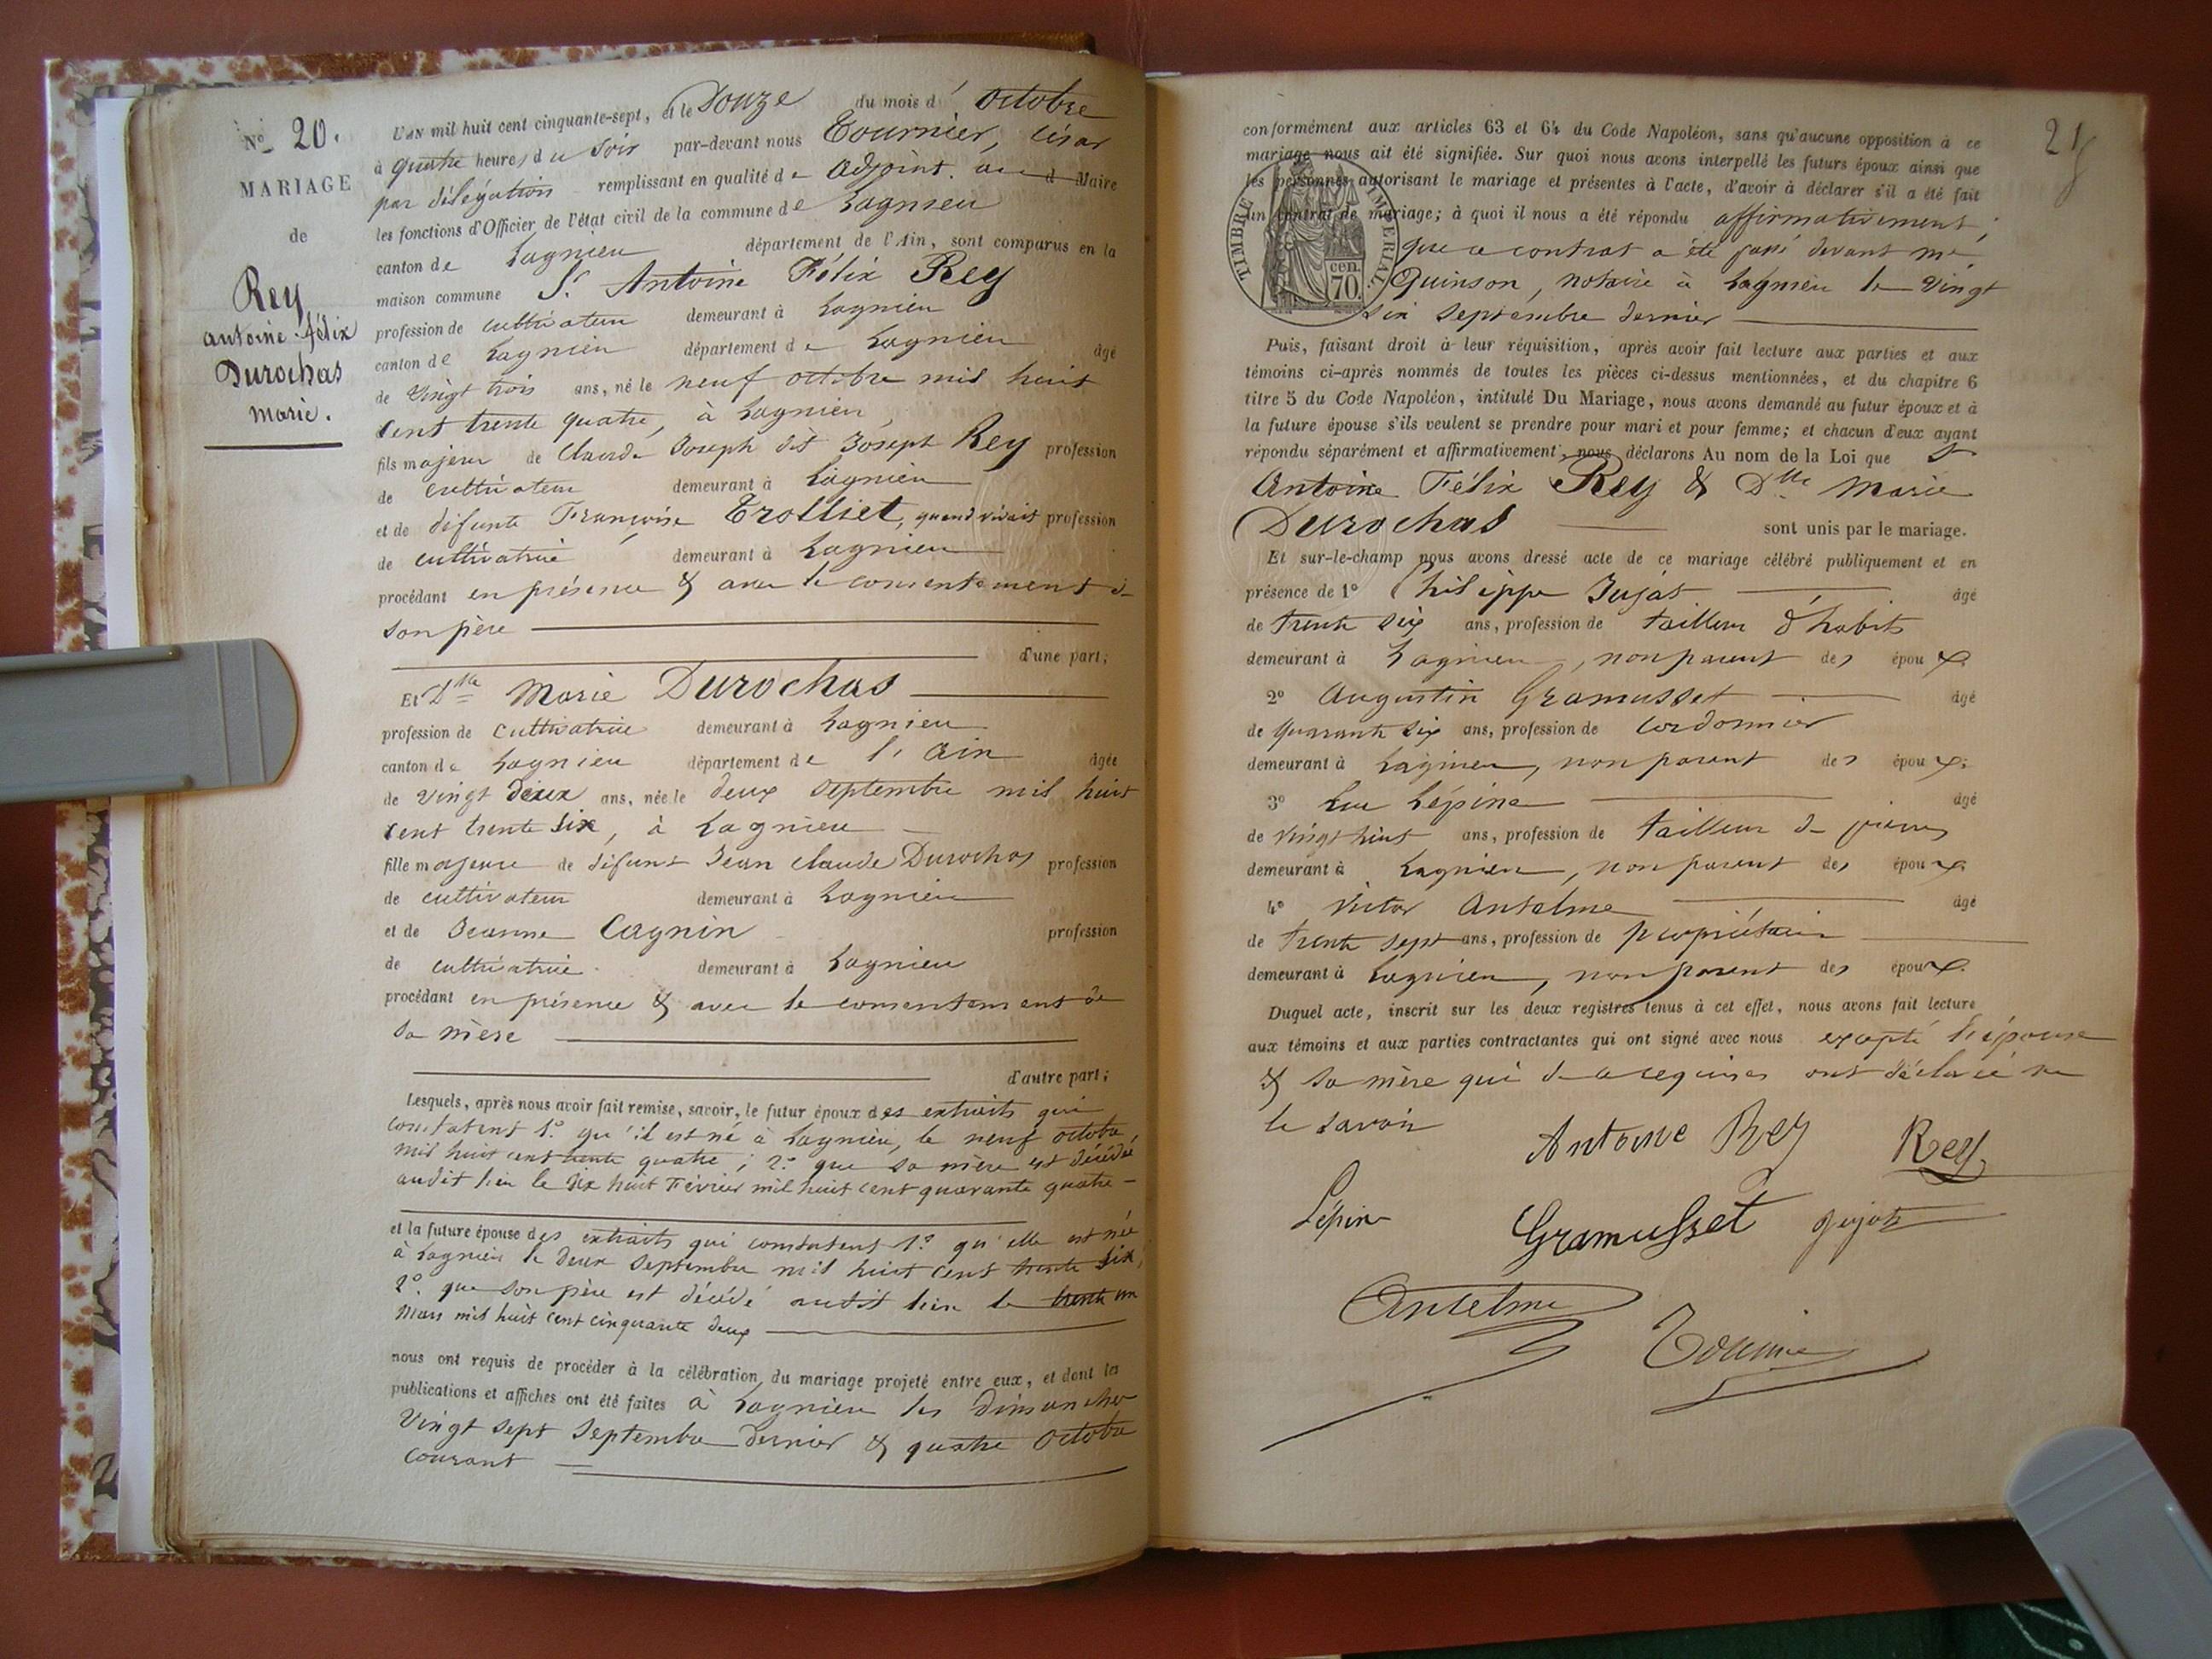 No 20.
MARIAGE
de
Rey
antoine-félix
Durochas
marie.
L'an mil huit cent cinquante-sept, et le Douze du mois d' octobre
à quatre heures du Soir par-devant nous Tournier, César
par délégation remplissant en qualité de adjoint. au d Maire
les fonctions d'Officier de l'état civil de la commune de Lagnieu
canton de Lagnieu département de l'Ain, sont comparus en la
maison commune Sr. Antoine Félix Rey
profession de cultivateur demeurant à Lagnieu
canton de Lagnieu département de Lagnieu âgé
de vingt trois ans, né le neuf octobre mil huit
cent trente quatre, à Lagnieu
fils majeur de Claude Joseph dit Joseph Rey profession
de cultivateur demeurant à Lagnieu
et de défunte Françoise Trolliet, quand vivait profession
de cultivatrice demeurant à Lagnieu
procédant en présence & avec le consentement de
son père
d'une part;
Et Dlle Marie Durochas
profession de cultivatrice demeurant à Lagnieu
canton de Lagnieu département de l'Ain âgée
de vingt deux ans, née le deux septembre mil huit
cent trente six, à Lagnieu
fille majeure de défunt Jean Claude Durochas profession
de cultivateur demeurant à Lagnieu
et de Jeanne Cagnin profession
de cultivatrice demeurant à Lagnieu
procédant en présence & avec le consentement de
sa mère
d'autre part;
Lesquels, après nous avoir fait remise, savoir, le futur époux des extraits qui
constatent 1.° qu'il est né à Lagnieu, le neuf octobre
mil huit cent trente quatre; 2.° que sa mère est décédée
audit lieu le dix huit Février mil huit cent quarante quatre -
et la future épouse des extraits qui constatent 1.° qu'elle est née
à Lagnieu le deux septembre mil huit cent trente six,
2.° que son père est décédé audit lieu le trente un
mars mil huit cent cinquante deux
nous ont requis de procéder à la célébration du mariage projeté entre eux, et dont les
publications et affiches ont été faites à Lagnieu les dimanches
vingt sept septembre dernier & quatre octobre
courant
21
conformément aux articles 63 et 64 du Code Napoléon, sans qu'aucune opposition à ce
mariage nous ait été signifiée. Sur quoi nous avons interpellé les futurs époux ainsi que
les personnes autorisant le mariage et présentes à l'acte, d'avoir à déclarer s'il a été fait
un contrat de mariage; à quoi il nous a été répondu affirmativement,
que ce contrat a été passé devant me
Quinson, notaire à Lagnieu le vingt
six septembre dernier
TIMBRE IMPERIAL
cen.
70.
Puis, faisant droit à leur réquisition, après avoir fait lecture aux parties et aux
témoins ci-après nommés de toutes les pièces ci-dessus mentionnées, et du chapitre 6
titre 5 du Code Napoléon, intitulé Du Mariage, nous avons demandé au futur époux et à
la future épouse s'ils veulent se prendre pour mari et pour femme; et chacun d'eux ayant
répondu séparément et affirmativement, nous déclarons Au nom de la Loi que Sr
Antoine Félix Rey & Dlle Marie
Durochas sont unis par le mariage.
Et sur-le-champ nous avons dressé acte de ce mariage célébré publiquement et en
présence de 1° Philippe Jujat âgé
de trente six ans, profession de tailleur d'habits
demeurant à Lagnieu, non parent des époux.
2° Augustin Gramusset âgé
de quarante six ans, profession de cordonnier
demeurant à Lagnieu, non parent des époux.
3° Luc Lépine âgé
de vingt huit ans, profession de tailleur de pierres
demeurant à Lagnieu, non parent des époux.
4° Victor Anselme âgé
de trente sept ans, profession de propriétaire
demeurant à Lagnieu, non parent des époux.
Duquel acte, inscrit sur les deux registres tenus à cet effet, nous avons fait lecture
aux témoins et aux parties contractantes qui ont signé avec nous excepté l'épouse
& sa mère qui de ce requises ont déclaré ne
le savoir
Antoine Rey Rey
Lépine Gramusset Jujat
Anselme
Tournier